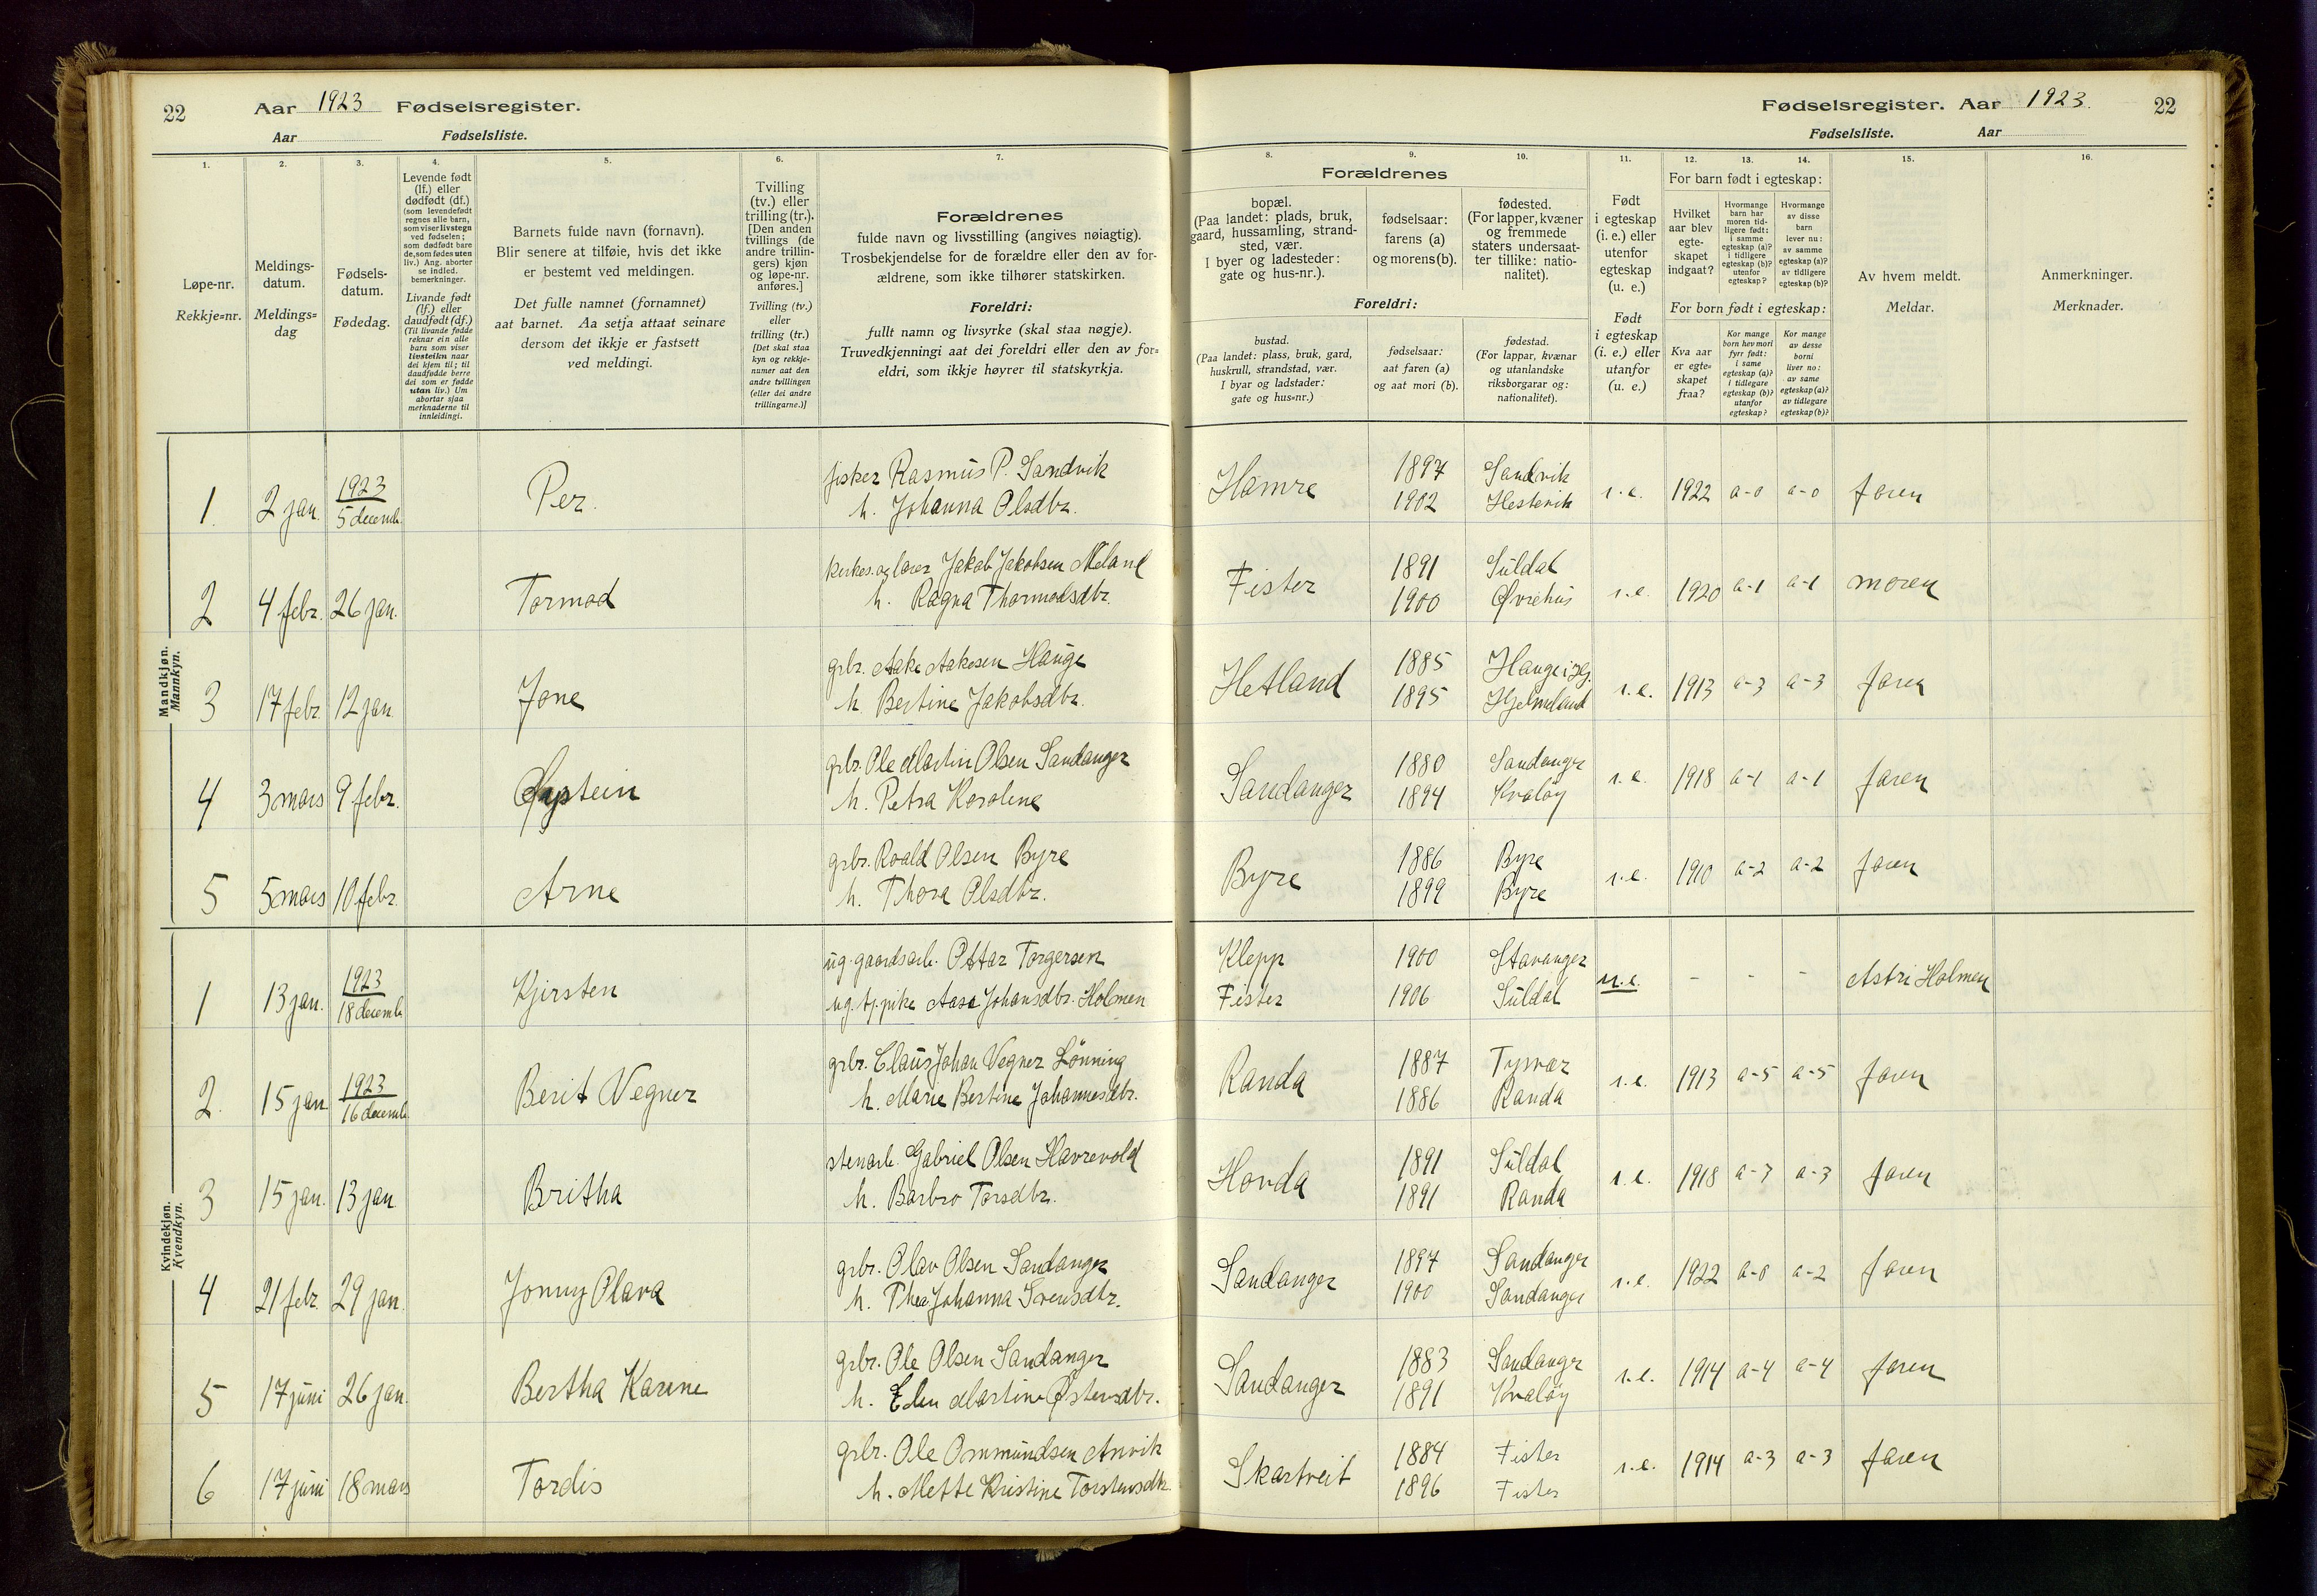 22 Aar 1923 Fødselsregister.
Aar Fødselsliste.
1. 2. 3. 4. 5. 6. 7.
Løpe-nr.
Rekkje=nr.
Meldings-
datum.
Meldings=
dag
Fødsels-
datum.
Fødedag.
Levende født
(lf.) eller
dødfødt (df.)
(som levendefødt
regnes alle barn,
som viser livstegn
ved fødselen;
som dødfødt bare
de, som fødes uten
liv.) Ang. aborter
se indled.
bemerkninger.
Livande født
(lf.) eller
daudfødt (df.)
(Til livande fødde
reknar ein alle
barn som viser
livsteikn naar
dei kjem til; til
daudfødde berre
dei som er fødde
utan liv.) Um
abortar sjaa
merknaderne til
innleidingi.
Barnets fulde navn (fornavn).
Blir senere at tilføie, hvis det ikke
er bestemt ved meldingen.
Det fulle namnet (fornamnet)
aat barnet. Aa setja attaat seinare
dersom det ikkje er fastsett
ved meldingi.
Tvilling
(tv.) eller
trilling (tr.).
[Den anden
tvillings (de
andre trillin-
gers) kjøn
og løpe-nr.
anføres.]
Tvilling (tv.)
eller
trilling (tr.)
[Det skal staa
kyn og rekkje-
numer aat den
andre tvillingen
(eller dei andre
trillingarne.)]
Forældrenes
fulde navn og livsstilling (angives nøiagtig).
Trosbekjendelse for de forældre eller den av for-
ældrene, som ikke tilhører statskirken.
Foreldri:
fullt namn og livsyrke (skal staa nøgje).
Truvedkjenningi aat dei foreldri eller den av for=
eldri, som ikkje høyrer til statskyrkja.
Fødselsregister. Aar 1923. 22
Fødselsliste. Aar
8. 9. 10. 11. 12. 13. 14. 15. 16.
Forældrenes
bopæl.
(Paa landet: plads, bruk,
gaard, hussamling, strand-
sted, vær.
I byer og ladesteder:
gate og hus-nr.).
fødselsaar:
farens (a)
og morens (b).
fødested.
(For lapper, kvæner
og fremmede
staters undersaat-
ter tillike: natio-
nalitet).
Foreldri:
bustad.
(Paa landet: plass, bruk, gard,
huskrull, strandstad, vær.
I byar og ladstader:
gate og hus=nr.)
fødselsaar:
aat faren (a)
og aat mori (b).
fødestad.
(For lappar, kvænar
og utanlandske
riksborgarar og:
nationalitet).
Født
i egteskap
(i. e.) eller
utenfor
egteskap
(u. e.)
Født
i egteskap
(i. e.) eller
utanfor
(u. e.)
For barn født i egteskap:
Hvilket
aar blev
egte-
skapet
indgaat?
Hvormange
barn har
moren tid-
ligere født:
i samme
egteskap (a)?
i tidligere
egteskap (b)?
utenfor
egteskap?
Hvormange
av disse
barn
lever nu:
av samme
egteskap (a)?
av tidligere
egteskap (b)?
For born født i egteskap:
Kva aar
er egte=
skapet
fraa?
Kor mange
born hev mori
fyrr født:
i same
egteskap (a)?
i tidlegare
egteskap (b)?
utanfor
egteskap?
Kor mange
av desse
borni
liver no:
av same
egteskap (a)?
av tidlegare
egteskap (b)?
Av hvem meldt.
Meldar.
Anmerkninger.
Merknader.
Mandkjøn.
Mannkyn.
1923 fisker Rasmus P. Sandvik 1897 Sandvik
1. 2 jan. 5 decemb. Per. h. Johanna Olsdtr. Hamre 1902 Hestvik i. e. 1922 a-0 a-0 faren
kirkes. og lærer Jakob Jakobsen Mæland 1891 Suldal
2 4 febr. 26 jan. Tormod h. Ragna Thormodsdtr. Fister 1900 Øvrehus i. e. 1920 a-1 a-1 moren
grbr. Aake Aakesen Hauge 1885 Hauge i Hj.
3 17 febr. 12 jan. Jone h. Bertine Jakobsdtr. Hetland 1895 Hjelmeland i. e. 1913 a-3 a-3 faren
grbr. Ole Martin Olsen Sandanger 1880 Sandanger
4 3 mars 9 febr. Øystein h. Petra Karoline Sandanger 1894 Kvaløy i. e. 1918 a-1 a-1 faren
grbr. Roald Olsen Byre 1886 Byre
5 5 mars 10 febr. Arne h. Thora Olsdtr. Byre 1899 Byre i. e. 1910 a-2 a-2 faren
Kvindekjøn.
Kvendkyn.
1923 ug. gaardsarb. Ottar Torgersen Klepp 1900 Stavanger
1 13 jan. 18 decemb. Kjirsten ug. tj. pike Aasa Johansdtr. Holmen Fister 1906 Suldal u. e. - - - Astri Holmen
1923 grbr. Claus Johan Vegner Lönning 1887 Tysvær
2. 15 jan. 16 decemb. Berit Vegner h. Marie Bertine Johannesdtr. Randa 1886 Randa i. e. 1913 a-5 a-5 faren
stenarb. Gabriel Olsen Havrevold 1891 Suldal
3 15 jan. 13 jan. Britha h. Barbro Torsdtr. Honda 1891 Randa i. e. 1918 a-3 a-3 faren
grbr. Olav Olsen Sandanger 1897 Sandanger
4 21 febr. 29 jan. Jonny Olava h. Thea Johanna Svensdtr. Sandanger 1900 Sandanger i. e. 1922 a-0 a-2 faren
grbr. Ole Olsen Sandanger 1883 Sandanger
5 17 juni 26 jan. Bertha Karine h. Elen Martine Østensdtr. Sandanger 1891 Kvaløy i. e. 1914 a-4 a-4 faren
grbr. Ole Ommundsen Anvik 1884 Fister
6 17 juni 18 mars Tordis h. Mette Kristine Torstensdtr. Skartveit 1896 Fister i. e. 1914 a-3 a-3 faren